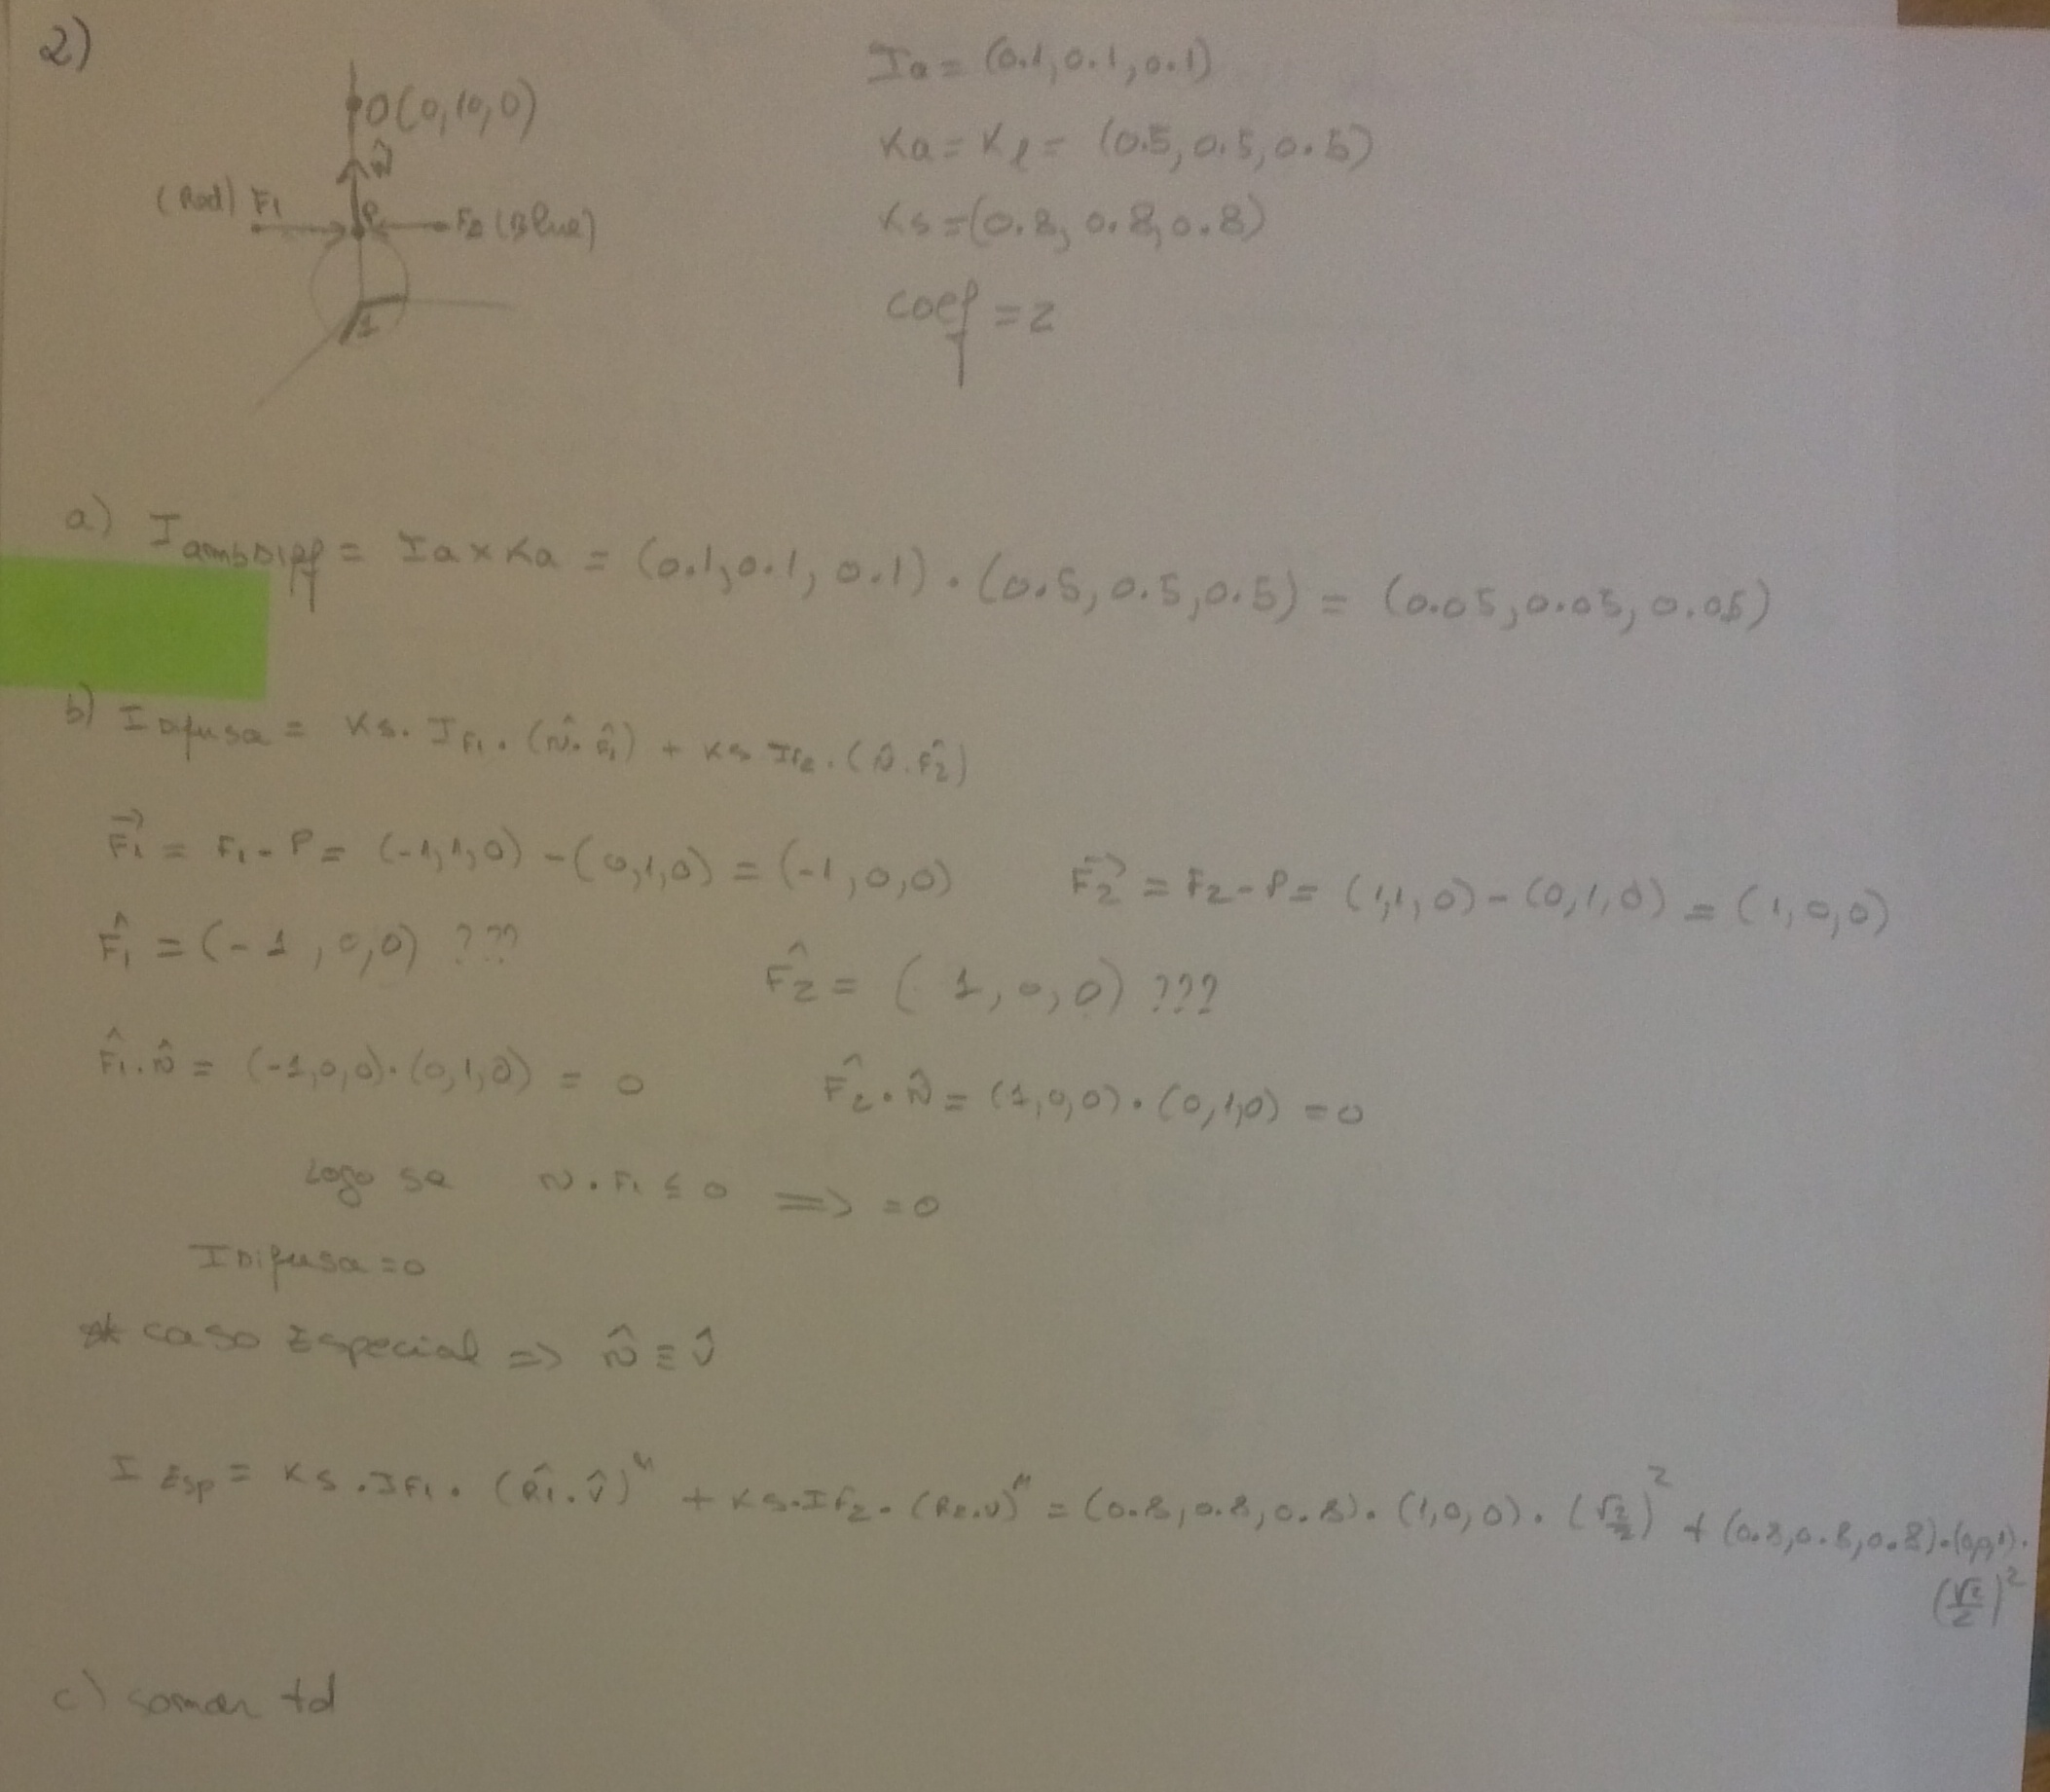 2)
O(0,10,0)
N̂
(Red) F1
P
F2 (Blue)
1
Ia = (0.1, 0.1, 0.1)
Ka = Kl = (0.5, 0.5, 0.5)
Ks = (0.8, 0.8, 0.8)
coef = 2
a) IambDiff = Ia x Ka = (0.1, 0.1, 0.1) . (0.5, 0.5, 0.5) = (0.05, 0.05, 0.05)
b) IDifusa = Ks . IF1 . (N̂ . F̂1) + Ks IF2 . (N̂ . F̂2)
F⃗1 = F1 - P = (-1,1,0) - (0,1,0) = (-1,0,0) F⃗2 = F2 - P = (1,1,0) - (0,1,0) = (1,0,0)
F̂1 = (-1,0,0) ??? F̂2 = (1,0,0) ???
F̂1 . N̂ = (-1,0,0) . (0,1,0) = 0 F̂2 . N̂ = (1,0,0) . (0,1,0) = 0
Logo se N . F1 ≤ 0 => = 0
IDifusa = 0
* caso Especial => N̂ ≡ V̂
I Esp = Ks . IF1 . (R̂1 . V̂)ⁿ + Ks . IF2 . (R2 . V)ⁿ = (0.8, 0.8, 0.8) . (1,0,0) . (√2/2)² + (0.8, 0.8, 0.8) . (0,0,1) .
(√2/2)²
c) somar td